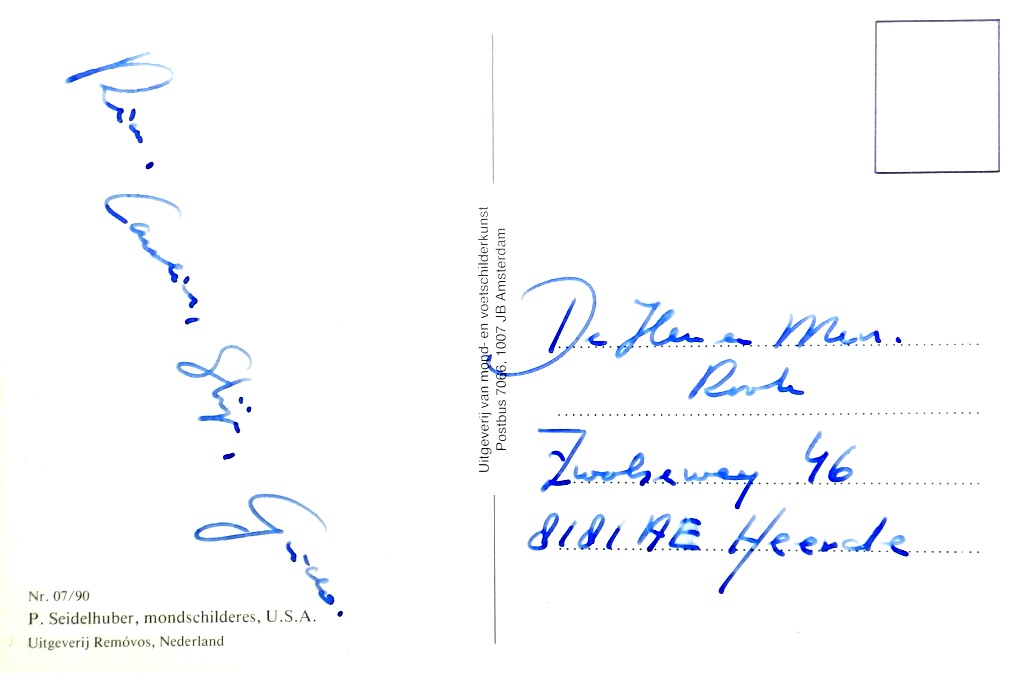 Uitgeverij van mond- en voetschilderkunst
Postbus 7066, 1007 JB Amsterdam
De Heer en Mevr.
Zwolseweg 46
8181 AE Heerde
Nr. 07/90
P. Seidelhuber, mondschilderes, U.S.A.
Uitgeverij Removos, Nederland